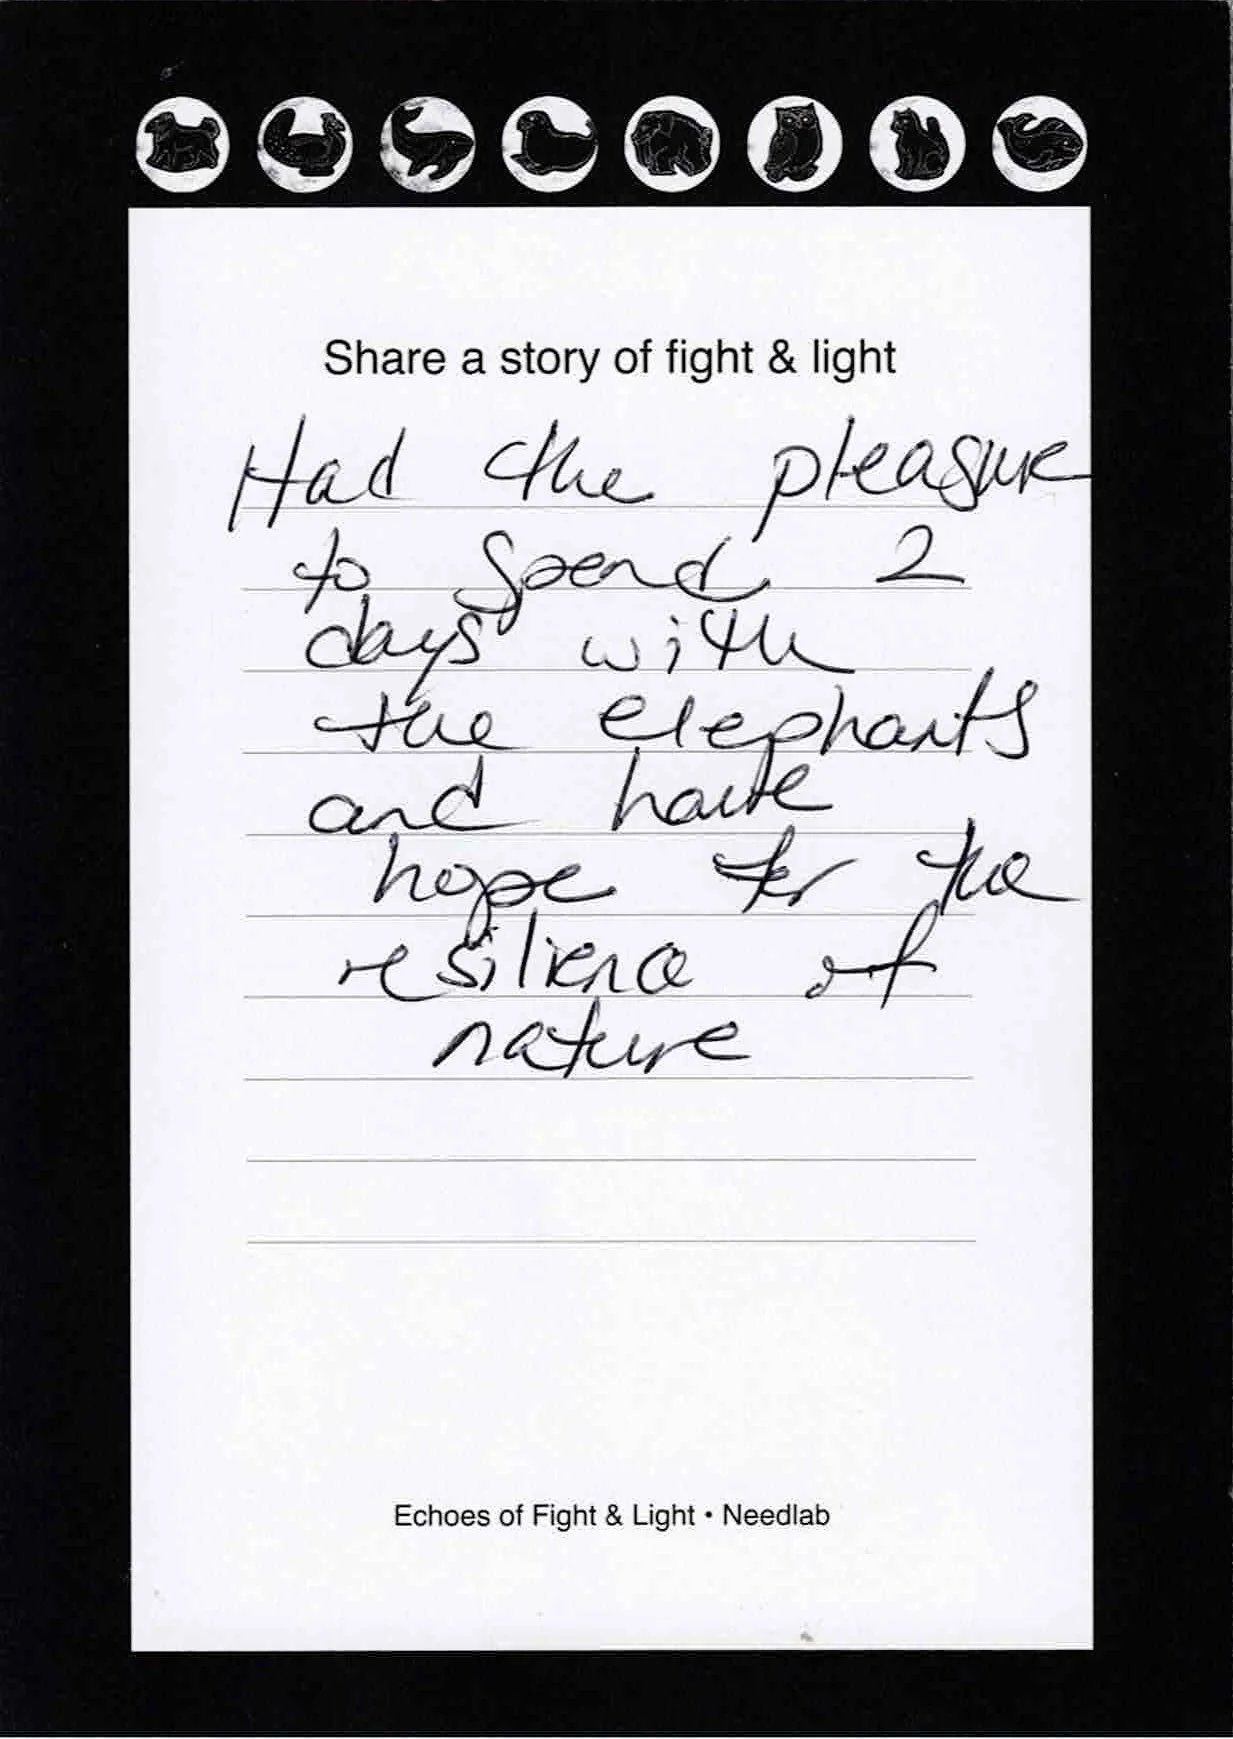 Share a story of fight & light
Had the pleasure
to spend 2
days with
the elephants
and have
hope for the
resilience of
nature
Echoes of Fight & Light • Needlab